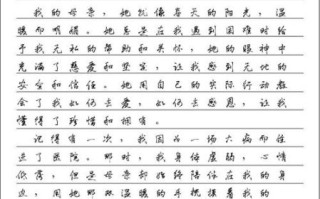 我的母亲，她就像春天的阳光，温
暖而明媚。她总是在我遇到困难时给
予我无私的帮助和关怀，她的眼神中
充满了慈爱和坚定，让我感到无比的
安全和信任。她用自己的实际行动教
会了我如何去爱，如何去感恩，让我
懂得了珍惜和拥有。
记得有一次，我因为一场大病而住
进了医院。那时，我身体虚弱，心情
低落，但是母亲却始终陪伴在我的身
边，用她那双温暖的手抚摸着我的